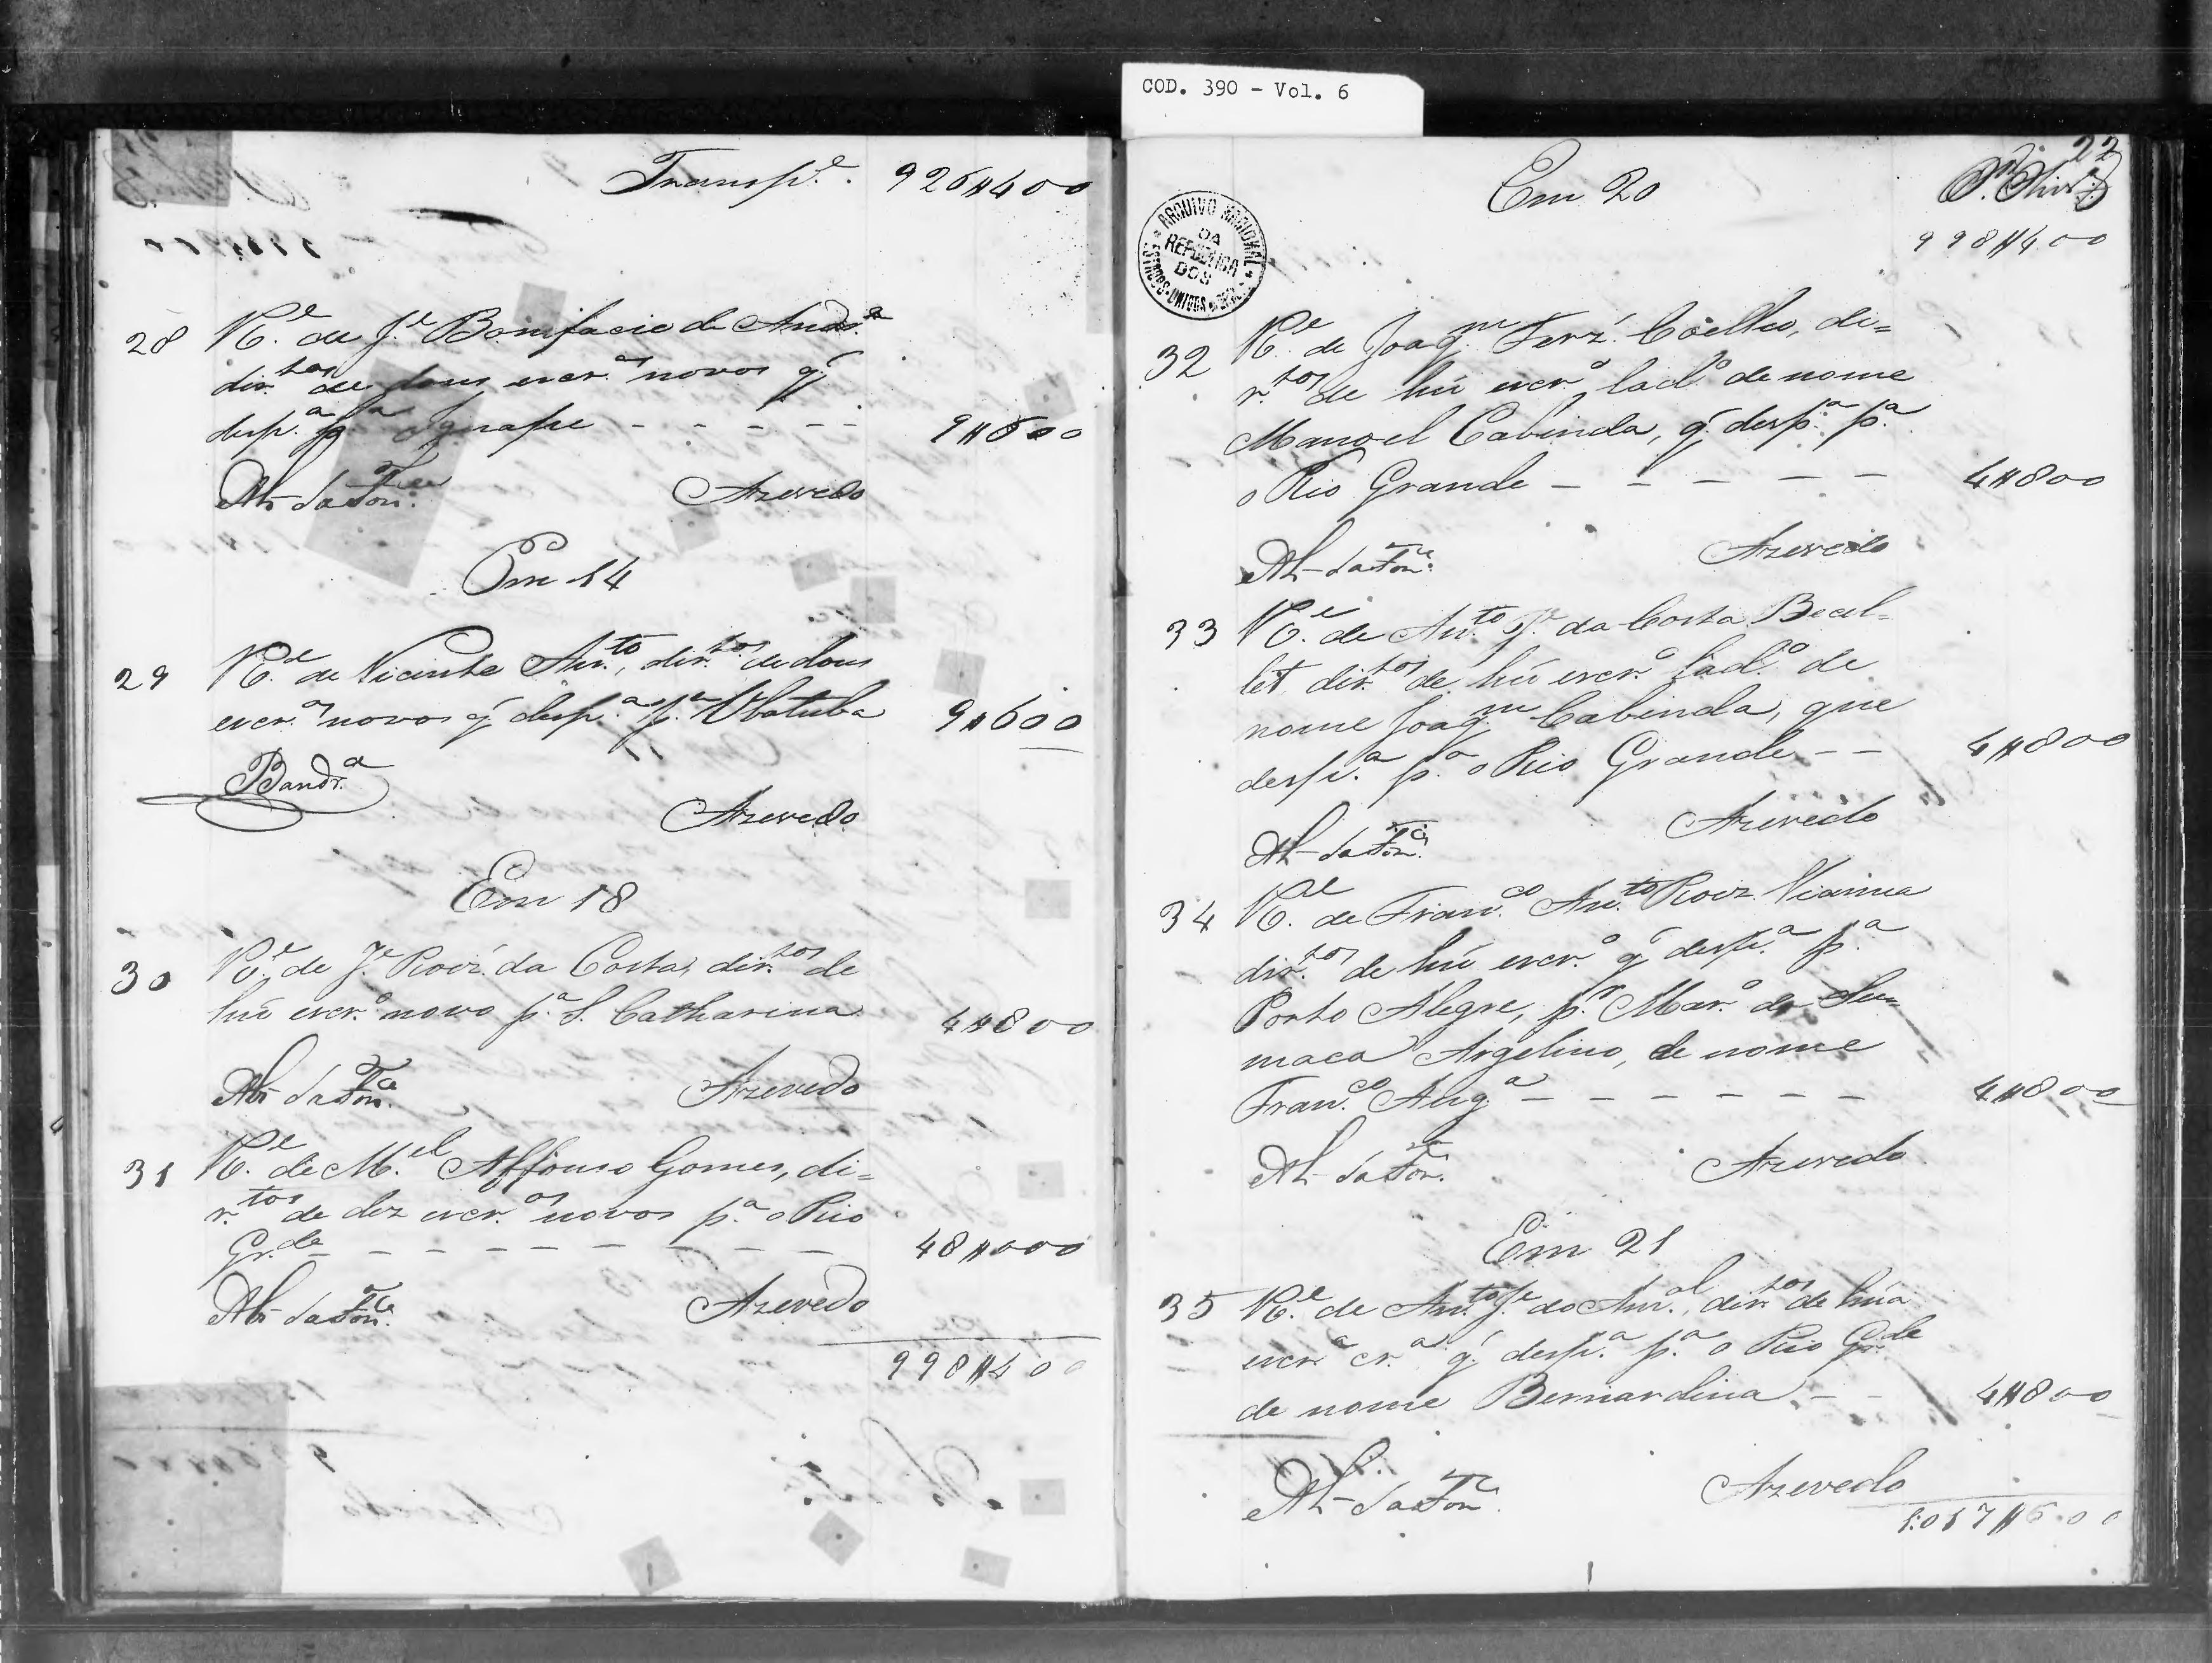 COD. 390 - Vol. 6
Transp.e 926$400
28 R.e de J.e Bonifacio de Andr.a
dir.tos de dous escr.os novos q̃
desp.a p.a Iguape - - - - - 9$600
Azevedo
Em 14
29 R.e de Vicente Ant.o, dir.tos de dous
escr.os novos q̃ desp.a p.a Ubatuba 9$600
Band.ra
Azevedo
Em 18
30 R.e de J.e Roiz da Costa, dir.tos de
hũ escr.o novo p.a S. Catharina 4$800
Azevedo
31 R.e de M.el Affonso Gomes, di=
r.tos de dez escr.os novos p.a o Rio
Gr.de - - - - - - - - - 48$000
Azevedo
998$400
22
Em 20
998$400
ARQUIVO NACIONAL
DA
REPUBLICA
DOS
ESTADOS-UNIDOS
32 R.e de Joaq.m Ferz. Coelho, di=
r.tos de hũ escr.o lad.o de nome
Manoel Cabinda, q̃ desp.a p.a
o Rio Grande - - - - - 4$800
Azevedo
33 R.e de Ant.o J.e da Costa Becal=
let dir.tos de hũ escr.o lad.o de
nome Joaq.m Cabinda, que
desp.a p.a o Rio Grande - - 4$800
Azevedo
34 R.e de Fran.co Ant.o Roiz Vianna
dir.tos de hũ escr.o q̃ desp.a p.a
Porto Alegre, p.r Mar.o da Su=
maca Argelino, de nome
Fran.co Ang.a - - - - - - 4$800
Azevedo
Em 21
35 R.e de Ant.o J.e do Am.al, dir.tos de hũa
escr.a cr.a q̃ desp.a p.a o Rio Gr.de
de nome Bernardina - - 4$800
Azevedo
1:017$600